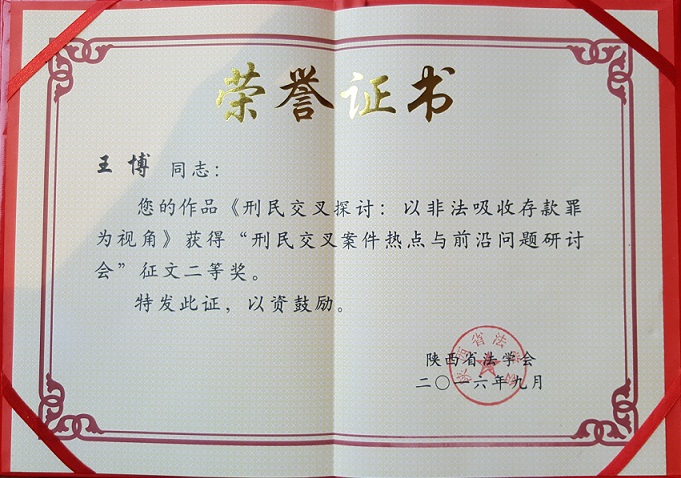 荣誉证书
王博 同志：
您的作品《刑民交叉探讨：以非法吸收存款罪
为视角》获得“刑民交叉案件热点与前沿问题研讨
会”征文二等奖。
特发此证，以资鼓励。
陕西省法学会
二〇一六年九月
陕西省法学会